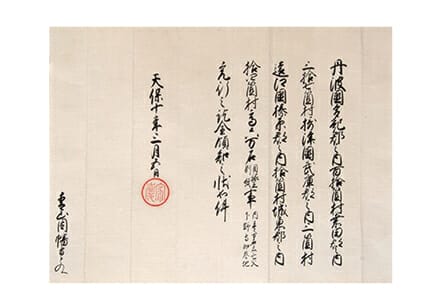 丹波國多紀郡之内百拾箇村桑田郡之内
二拾七箇村摂津國武庫郡之内二箇村
遠江國榛原郡之内拾箇村城東郡之内
箇村高六万石目録在別紙事
充行之訖全可領知之状如件
天保十年三月五日
青山因幡守とのへ